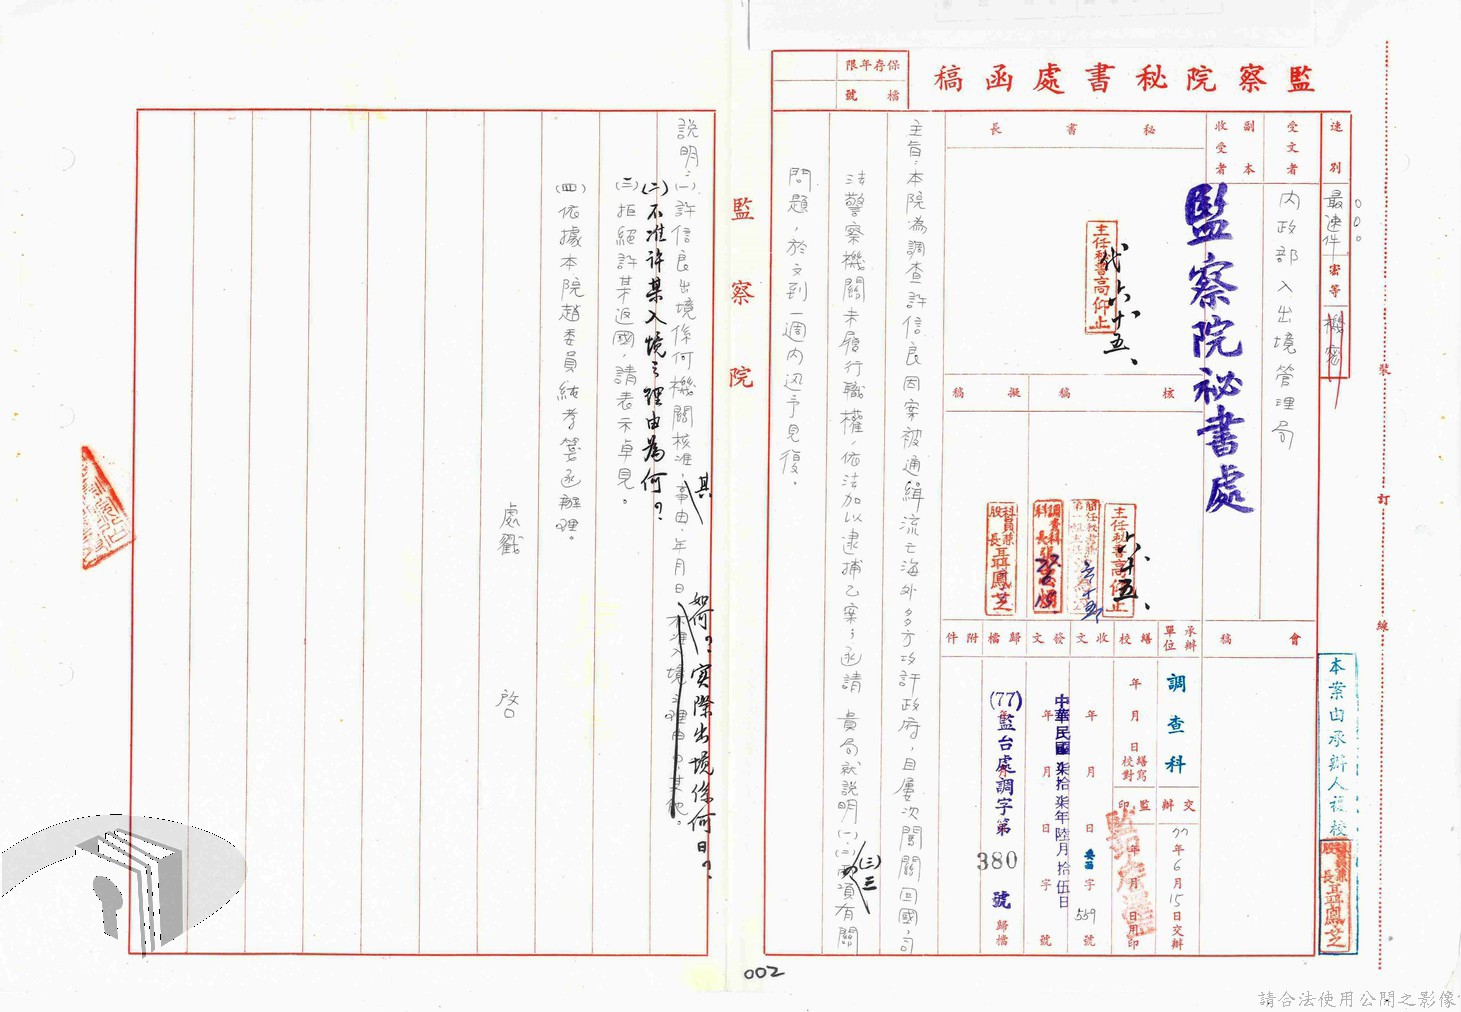 監察院秘書處函稿
保存年限
檔號
速別
最速件
密等
機密
受文者
內政部入出境管理局
副本
收受者
監察院祕書處
秘書長
主任秘書高仰止
代
六、十五、
核稿
擬稿
主任秘書高仰止
六、十五、
調查科
科長
科員兼
股長
耳聘鳳芝
會稿
承辦
單位
調查科
繕校
年月日
繕寫
校對
收文
年月日
字
559
號
發文
中華民國柒拾柒年陸月拾伍日
年月日
字
號
歸檔
(77)監台處調字第
380
號
年月
歸檔
附件
交辦
77年6月15日交辦
監印
年月日用印
本案由承辦人複校
股長
耳聘鳳芝
裝
訂
線
主旨:本院為調查許信良因案被通緝流亡海外多方攻訐政府,自屢次闖關回國,司
法警察機關未履行職權,依法加以逮捕乙案;函請 貴局就說明(一)、(二)、(三)三項有關
問題,於文到一週內迅予見復。
監察院
說明:(一)許信良出境係何機關核准,其事由、年月日如何?實際出境係何日?
不准入境之理由?其他。
(二)不准許某入境之理由為何?
(三)拒絕許某返國,請表示卓見。
(四)依據本院趙委員純孝簽函辦理。
處戳 啓
002
請合法使用公開之影像